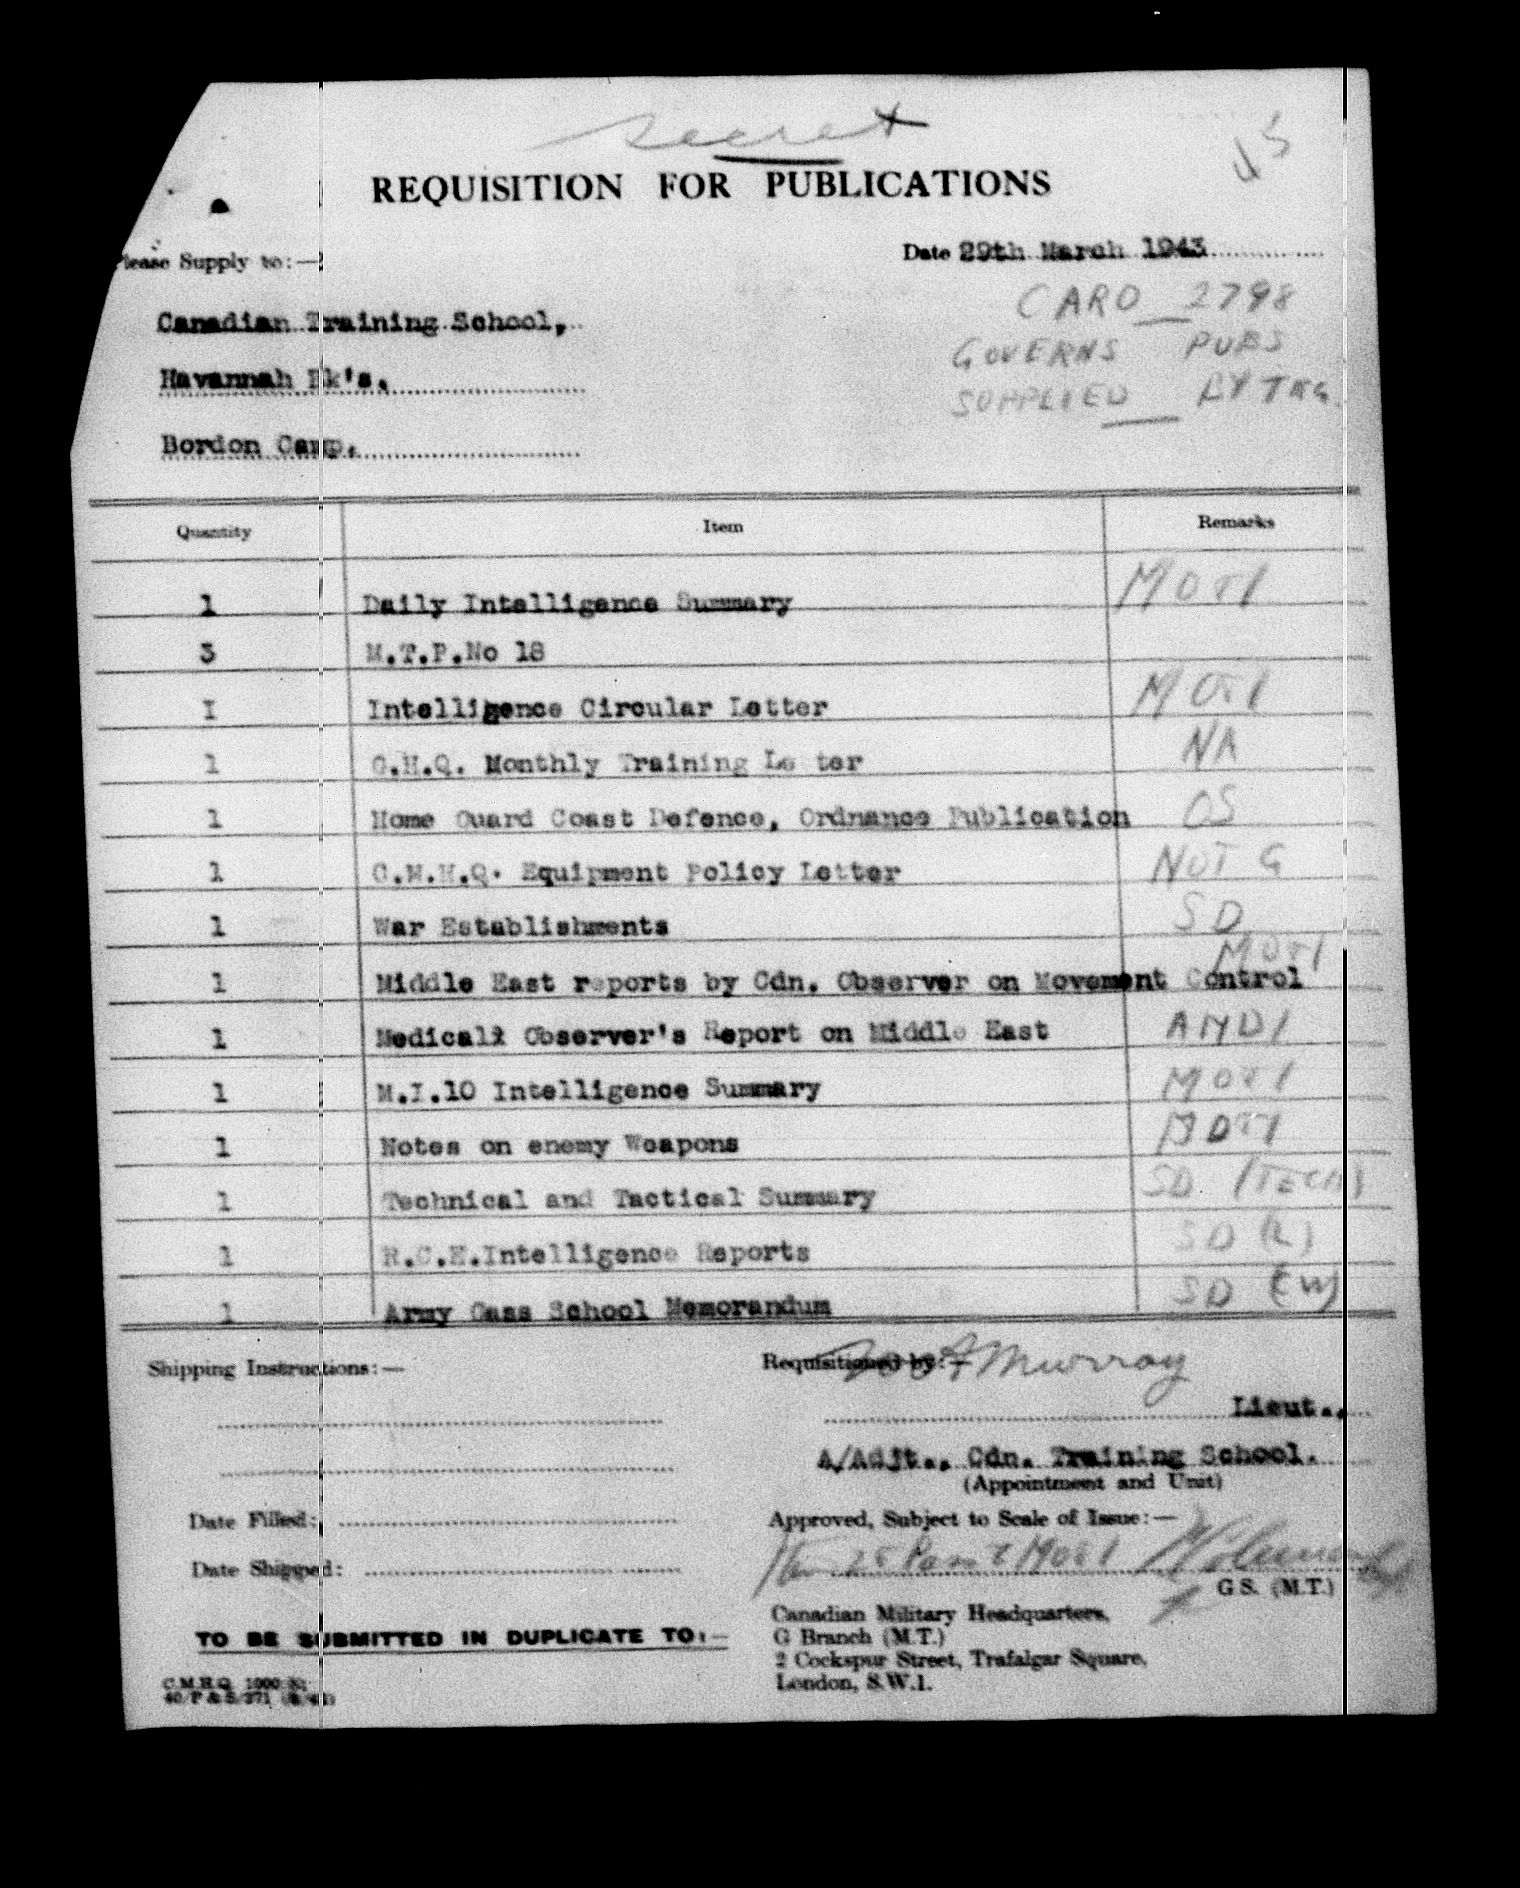 Secret
REQUISITION FOR PUBLICATIONS
Please Supply to:—
Date 29th March 1943
Canadian Training School,
Havannah Bk's.
Bordon Camp.
CARO 2798
GOVERNS PUBS
SUPPLIED BY TRG.
Quantity Item Remarks
1 Daily Intelligence Summary
3 M.T.P.No 18
I Intelligence Circular Letter
1 G.H.Q. Monthly Training Le ter NA
1 Home Guard Coast Defence, Ordnance Publication OS
1 C.M.H.Q. Equipment Policy Letter NOT G
1 War Establishments SD
1 Middle East reports by Cdn. Observer on Movement Control
1 Medical Observer's Report on Middle East
1 M.I.10 Intelligence Summary
1 Notes on enemy Weapons
1 Technical and Tactical Summary SD (TECH)
1 R.C.E.Intelligence Reports SD
1 Army Gass School Memorandum SD (W)
Shipping Instructions:—
Requisitioned by:— Murray
Lieut.,
A/Adjt., Cdn. Training School.
(Appointment and Unit)
Date Filled:
Approved, Subject to Scale of Issue:—
Date Shipped:
G.S. (M.T.)
TO BE SUBMITTED IN DUPLICATE TO:—
Canadian Military Headquarters,
G Branch (M.T.)
2 Cockspur Street, Trafalgar Square,
London, S.W.1.
C.M.H.Q.
40/P & S/371